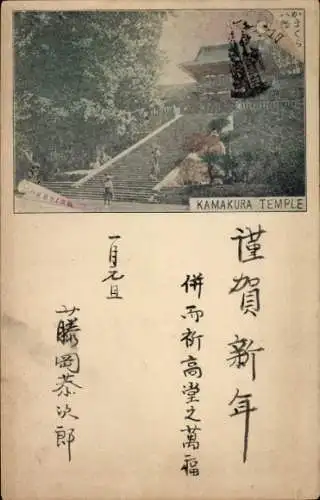 かまくら
八幡
KAMAKURA TEMPLE
謹賀新年
併而祈高堂之萬福
一月元旦
藤岡恭次郎